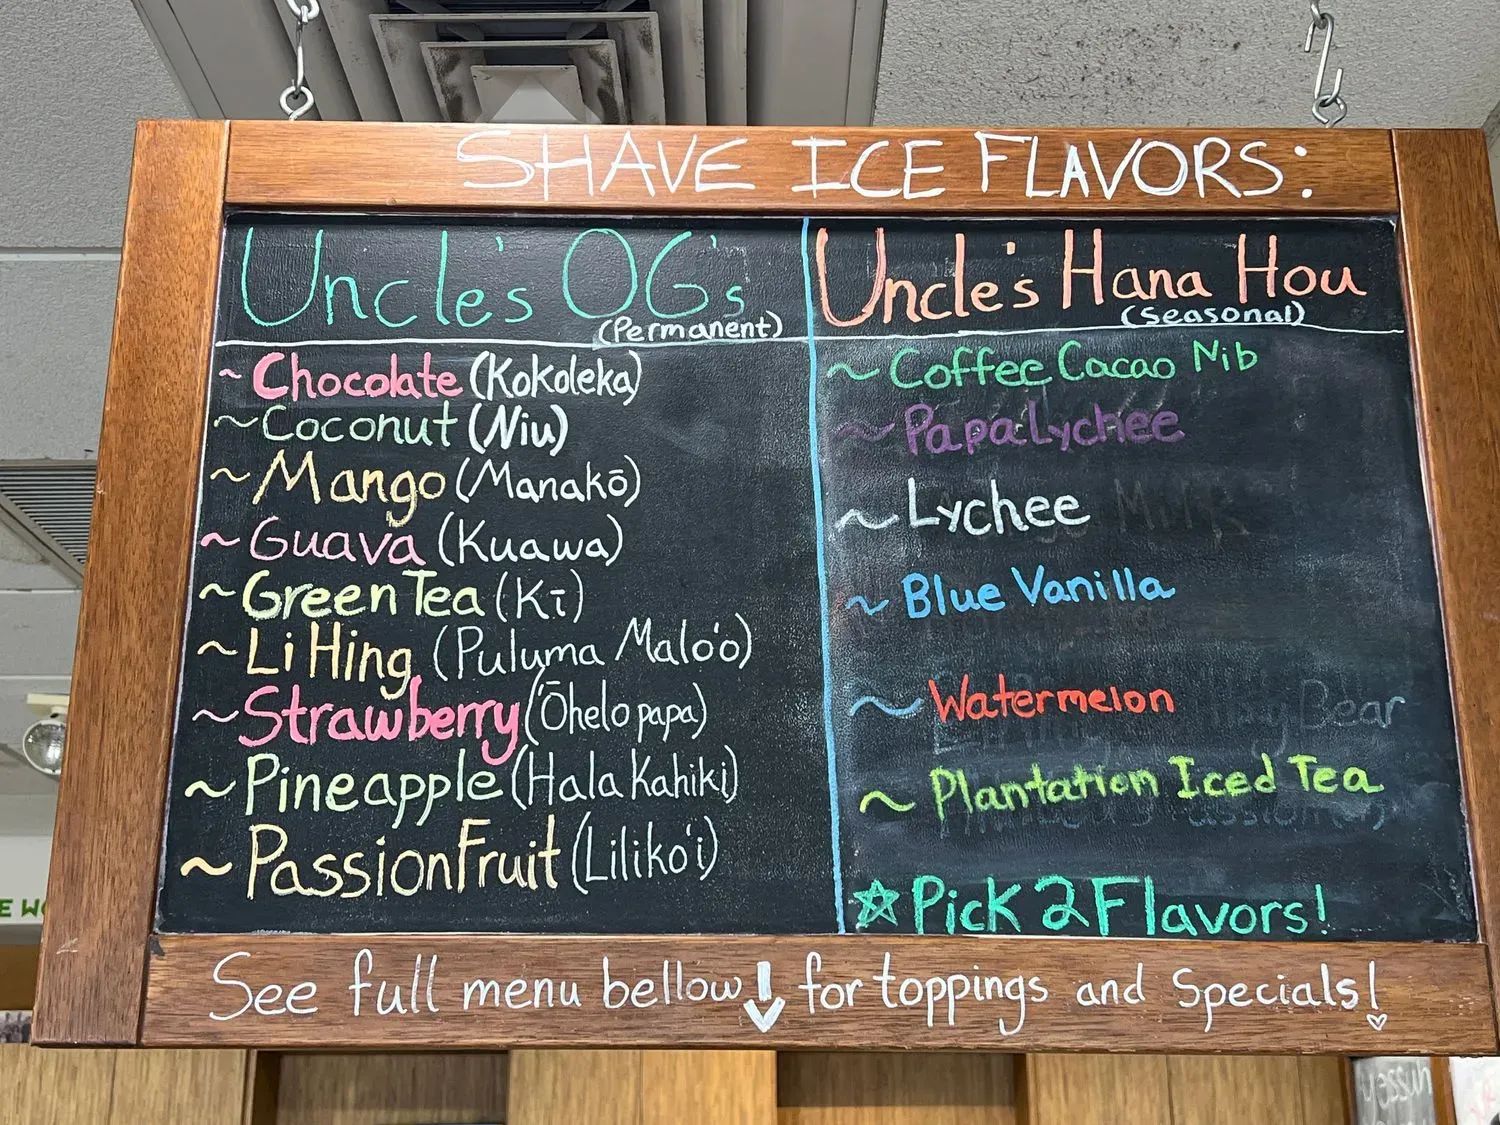 SHAVE ICE FLAVORS:
Uncle's OG's
(Permanent)
~ Chocolate (Kokoleka)
~ Coconut (Niu)
~ Mango (Manakō)
~ Guava (Kuawa)
~ Green Tea (Kī)
~ Li Hing (Puluma Malo'o)
~ Strawberry ('Ōhelo papa)
~ Pineapple (Hala Kahiki)
~ PassionFruit (Liliko'i)
Uncle's Hana Hou
(Seasonal)
~ Coffee Cacao Nib
~ PapaLychee
~ Lychee
~ Blue Vanilla
~ Watermelon
~ Plantation Iced Tea
☆ Pick 2 Flavors!
See full menu bellow ↓ for toppings and Specials!